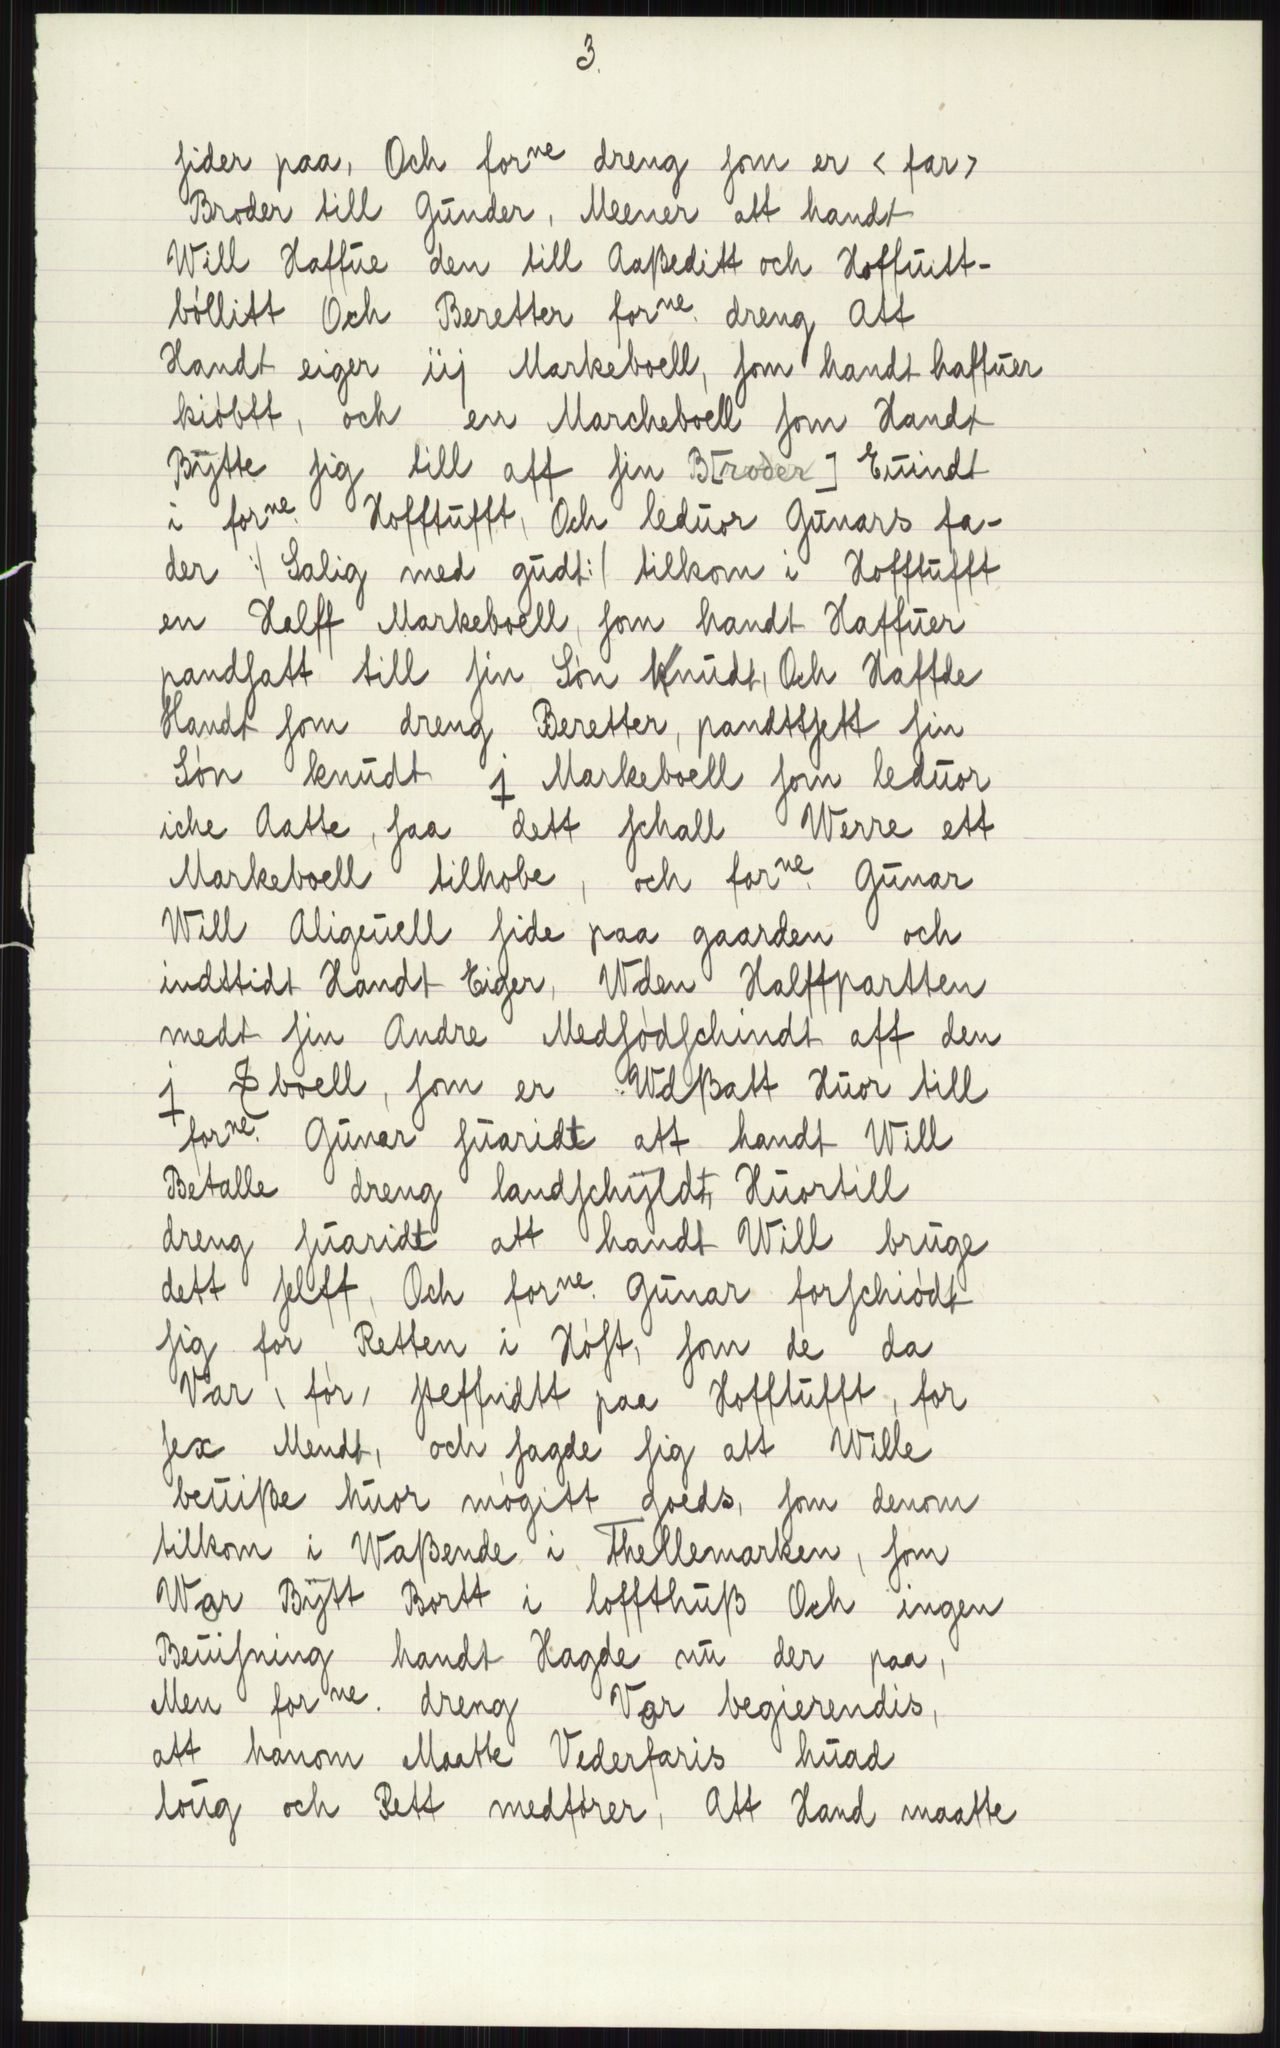 3.
sider paa, Och forne dreng som er < far >
Broder till Gunder, Meener att handt
Will Haffue den till Aaßeditt och Hoffuitt-
böllitt Och Beretter forne. dreng Att
Handt eiger iij Markeboell, som handt haffuer
kiöbtt, och en Marcheboell som Handt
Bÿtte sig till aff sin B[roder] Euindt
i forne. Hofftufft, Och leduor Gunars fa-
der :/ Salig med gudt:/ tilkom i Hofftufft
en Halff Markeboell, som handt Haffuer
pandsatt till sin Sön Knudt, Och Haffde
Handt som dreng Beretter, pandttsett sin
Sön knudt j Markeboell som leduor
iche Aatte, saa dett schall Werre ett
Markeboell tilhobe, och forne. Gunar
Will Aligeuell side paa gaarden och
indttidt Handt Eiger, Wden Halffpartten
medt sin Andre Medsödschindt aff den
j ₰ boell, som er Wdßatt Huor till
forne. Gunar suaridt att handt Will
Betalle dreng landschÿldt, Huortill
dreng suaridt att handt Will bruge
dett selff, Och forne. Gunar forschiödt
sig for Retten i Höst, som de da
Var, för, steffndtt paa Hofftufft, for
sex Mendt, och sagde sig att Wille
beuiße huor mögitt goeds, som denom
tilkom i Waßende i Thellemarken, som
War Bÿtt Bortt i loffthuß Och ingen
Beuisning handt Hagde nu der paa,
Men forne. dreng Var begierendis,
att hanom Maatte Vederfaris huad
loug och Rett medförer, Att Hand maatte